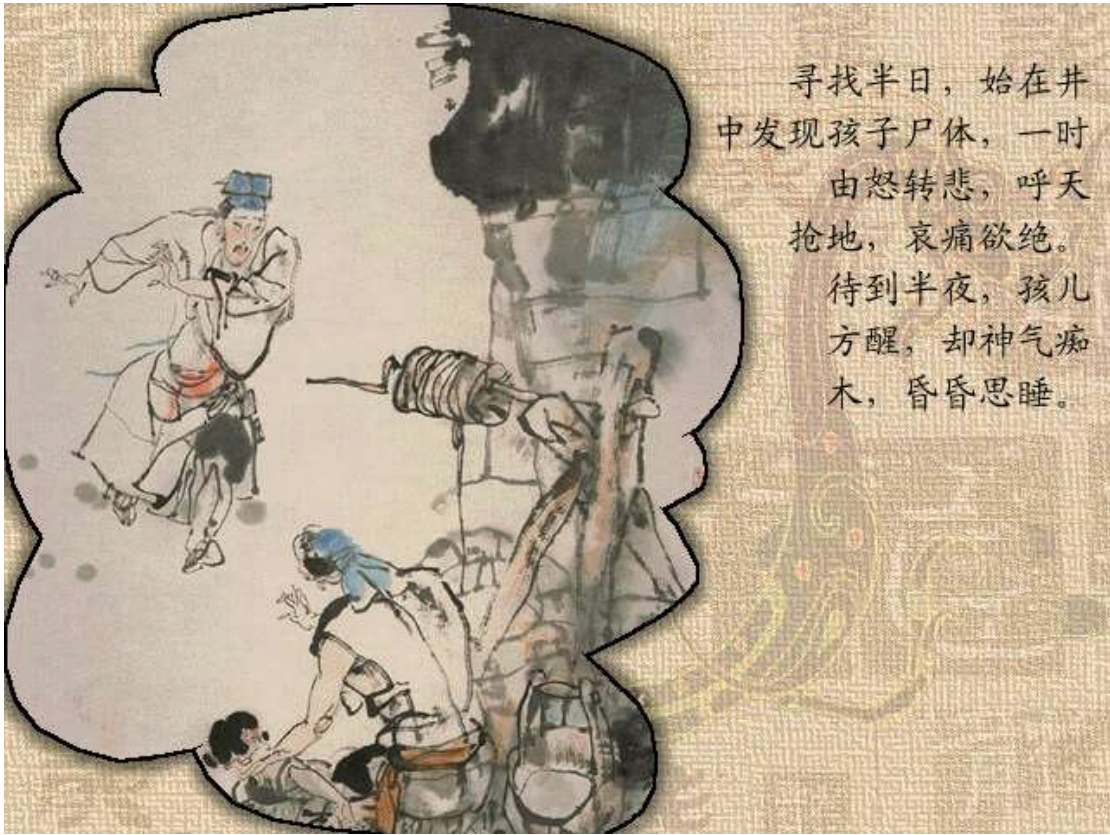 寻找半日，始在井
中发现孩子尸体，一时
由怒转悲，呼天
抢地，哀痛欲绝。
待到半夜，孩儿
方醒，却神气痴
木，昏昏思睡。